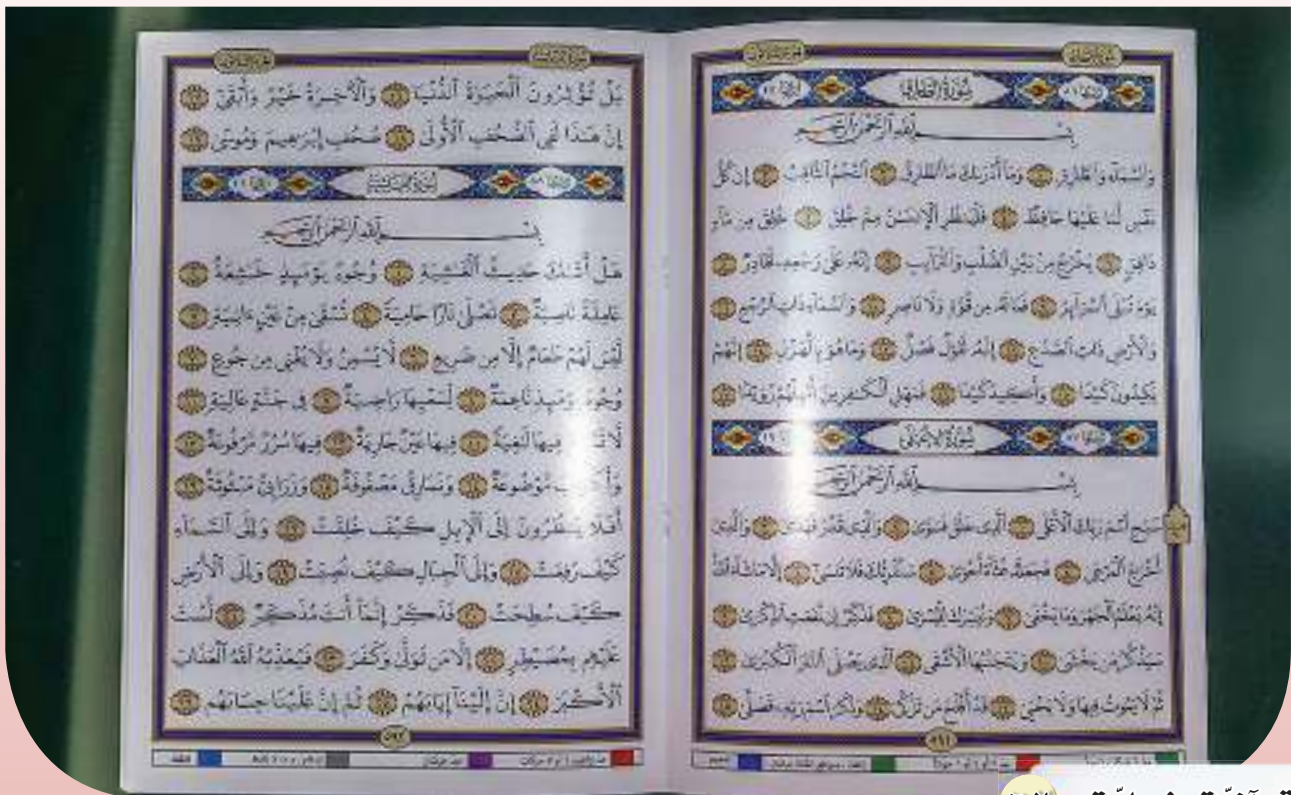 سُورَةُ الطَّارِقِ
بِسْمِ ٱللَّهِ ٱلرَّحْمَٰنِ ٱلرَّحِيمِ
وَٱلسَّمَآءِ وَٱلطَّارِقِ ١ وَمَآ أَدْرَىٰكَ مَا ٱلطَّارِقُ ٢ ٱلنَّجْمُ ٱلثَّاقِبُ ٣ إِن كُلُّ
نَفْسٍ لَّمَّا عَلَيْهَا حَافِظٌ ٤ فَلْيَنظُرِ ٱلْإِنسَٰنُ مِمَّ خُلِقَ ٥ خُلِقَ مِن مَّآءٍ
دَافِقٍ ٦ يَخْرُجُ مِنۢ بَيْنِ ٱلصُّلْبِ وَٱلتَّرَآئِبِ ٧ إِنَّهُۥ عَلَىٰ رَجْعِهِۦ لَقَادِرٌ ٨
يَوْمَ تُبْلَى ٱلسَّرَآئِرُ ٩ فَمَا لَهُۥ مِن قُوَّةٍ وَلَا نَاصِرٍ ١٠ وَٱلسَّمَآءِ ذَاتِ ٱلرَّجْعِ ١١
وَٱلْأَرْضِ ذَاتِ ٱلصَّدْعِ ١٢ إِنَّهُۥ لَقَوْلٌ فَصْلٌ ١٣ وَمَا هُوَ بِٱلْهَزْلِ ١٤ إِنَّهُمْ
يَكِيدُونَ كَيْدًا ١٥ وَأَكِيدُ كَيْدًا ١٦ فَمَهِّلِ ٱلْكَٰفِرِينَ أَمْهِلْهُمْ رُوَيْدًۢا ١٧
سُورَةُ الأَعْلَىٰ
بِسْمِ ٱللَّهِ ٱلرَّحْمَٰنِ ٱلرَّحِيمِ
سَبِّحِ ٱسْمَ رَبِّكَ ٱلْأَعْلَى ١ ٱلَّذِى خَلَقَ فَسَوَّىٰ ٢ وَٱلَّذِى قَدَّرَ فَهَدَىٰ ٣ وَٱلَّذِىٓ
أَخْرَجَ ٱلْمَرْعَىٰ ٤ فَجَعَلَهُۥ غُثَآءً أَحْوَىٰ ٥ سَنُقْرِئُكَ فَلَا تَنسَىٰٓ ٦ إِلَّا مَا شَآءَ ٱللَّهُ
إِنَّهُۥ يَعْلَمُ ٱلْجَهْرَ وَمَا يَخْفَىٰ ٧ وَنُيَسِّرُكَ لِلْيُسْرَىٰ ٨ فَذَكِّرْ إِن نَّفَعَتِ ٱلذِّكْرَىٰ ٩
سَيَذَّكَّرُ مَن يَخْشَىٰ ١٠ وَيَتَجَنَّبُهَا ٱلْأَشْقَى ١١ ٱلَّذِى يَصْلَى ٱلنَّارَ ٱلْكُبْرَىٰ ١٢
ثُمَّ لَا يَمُوتُ فِيهَا وَلَا يَحْيَىٰ ١٣ قَدْ أَفْلَحَ مَن تَزَكَّىٰ ١٤ وَذَكَرَ ٱسْمَ رَبِّهِۦ فَصَلَّىٰ ١٥
٥٩١
بَلْ تُؤْثِرُونَ ٱلْحَيَوٰةَ ٱلدُّنْيَا ١٦ وَٱلْـَٔاخِرَةُ خَيْرٌ وَأَبْقَىٰٓ ١٧
إِنَّ هَٰذَا لَفِى ٱلصُّحُفِ ٱلْأُولَىٰ ١٨ صُحُفِ إِبْرَٰهِيمَ وَمُوسَىٰ ١٩
سُورَةُ الغَاشِيَةِ
بِسْمِ ٱللَّهِ ٱلرَّحْمَٰنِ ٱلرَّحِيمِ
هَلْ أَتَىٰكَ حَدِيثُ ٱلْغَٰشِيَةِ ١ وُجُوهٌ يَوْمَئِذٍ خَٰشِعَةٌ ٢
عَامِلَةٌ نَّاصِبَةٌ ٣ تَصْلَىٰ نَارًا حَامِيَةً ٤ تُسْقَىٰ مِنْ عَيْنٍ ءَانِيَةٍ ٥
لَّيْسَ لَهُمْ طَعَامٌ إِلَّا مِن ضَرِيعٍ ٦ لَّا يُسْمِنُ وَلَا يُغْنِى مِن جُوعٍ ٧
وُجُوهٌ يَوْمَئِذٍ نَّاعِمَةٌ ٨ لِّسَعْيِهَا رَاضِيَةٌ ٩ فِى جَنَّةٍ عَالِيَةٍ ١٠
لَّا فِيهَا لَٰغِيَةً ١١ فِيهَا عَيْنٌ جَارِيَةٌ ١٢ فِيهَا سُرُرٌ مَّرْفُوعَةٌ ١٣
وَأَكْوَابٌ مَّوْضُوعَةٌ ١٤ وَنَمَارِقُ مَصْفُوفَةٌ ١٥ وَزَرَابِىُّ مَبْثُوثَةٌ ١٦
أَفَلَا يَنظُرُونَ إِلَى ٱلْإِبِلِ كَيْفَ خُلِقَتْ ١٧ وَإِلَى ٱلسَّمَآءِ
كَيْفَ رُفِعَتْ ١٨ وَإِلَى ٱلْجِبَالِ كَيْفَ نُصِبَتْ ١٩ وَإِلَى ٱلْأَرْضِ
كَيْفَ سُطِحَتْ ٢٠ فَذَكِّرْ إِنَّمَآ أَنتَ مُذَكِّرٌ ٢١ لَّسْتَ
عَلَيْهِم بِمُصَيْطِرٍ ٢٢ إِلَّا مَن تَوَلَّىٰ وَكَفَرَ ٢٣ فَيُعَذِّبُهُ ٱللَّهُ ٱلْعَذَابَ
ٱلْأَكْبَرَ ٢٤ إِنَّ إِلَيْنَآ إِيَابَهُمْ ٢٥ ثُمَّ إِنَّ عَلَيْنَا حِسَابَهُم ٢٦
٥٩٢